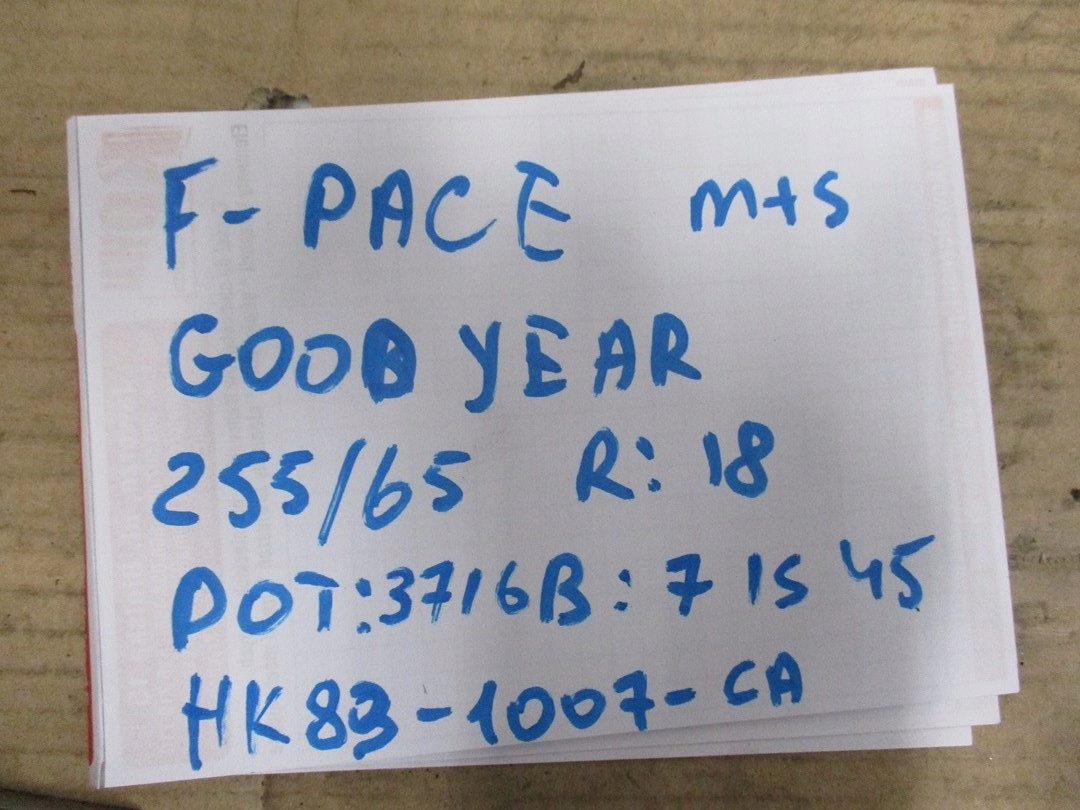 F-PACE M+S
GOOD YEAR
255/65 R: 18
DOT:3716 B: 7 IS 45
HK83-1007-CA